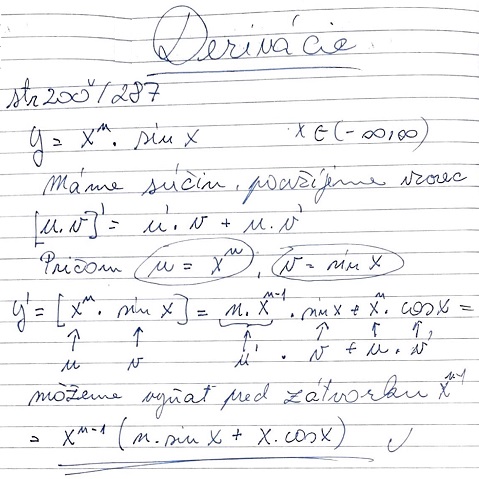 Derivácie
str 200/287
y = xⁿ. sin x x ∈ (-∞,∞)
Máme súčin, použijeme vzorec
[u.v]' = u'.v + u.v'
Pričom u = xⁿ, v = sin x
y' = [xⁿ. sin x] = n.xⁿ⁻¹. sin x + xⁿ. cos x =
↑ ↑ ↑ ↑ ↑ ↑
u v u' . v + u . v'
môžeme vyňať pred zátvorku xⁿ⁻¹
= xⁿ⁻¹ (n. sin x + x. cos x) ✓